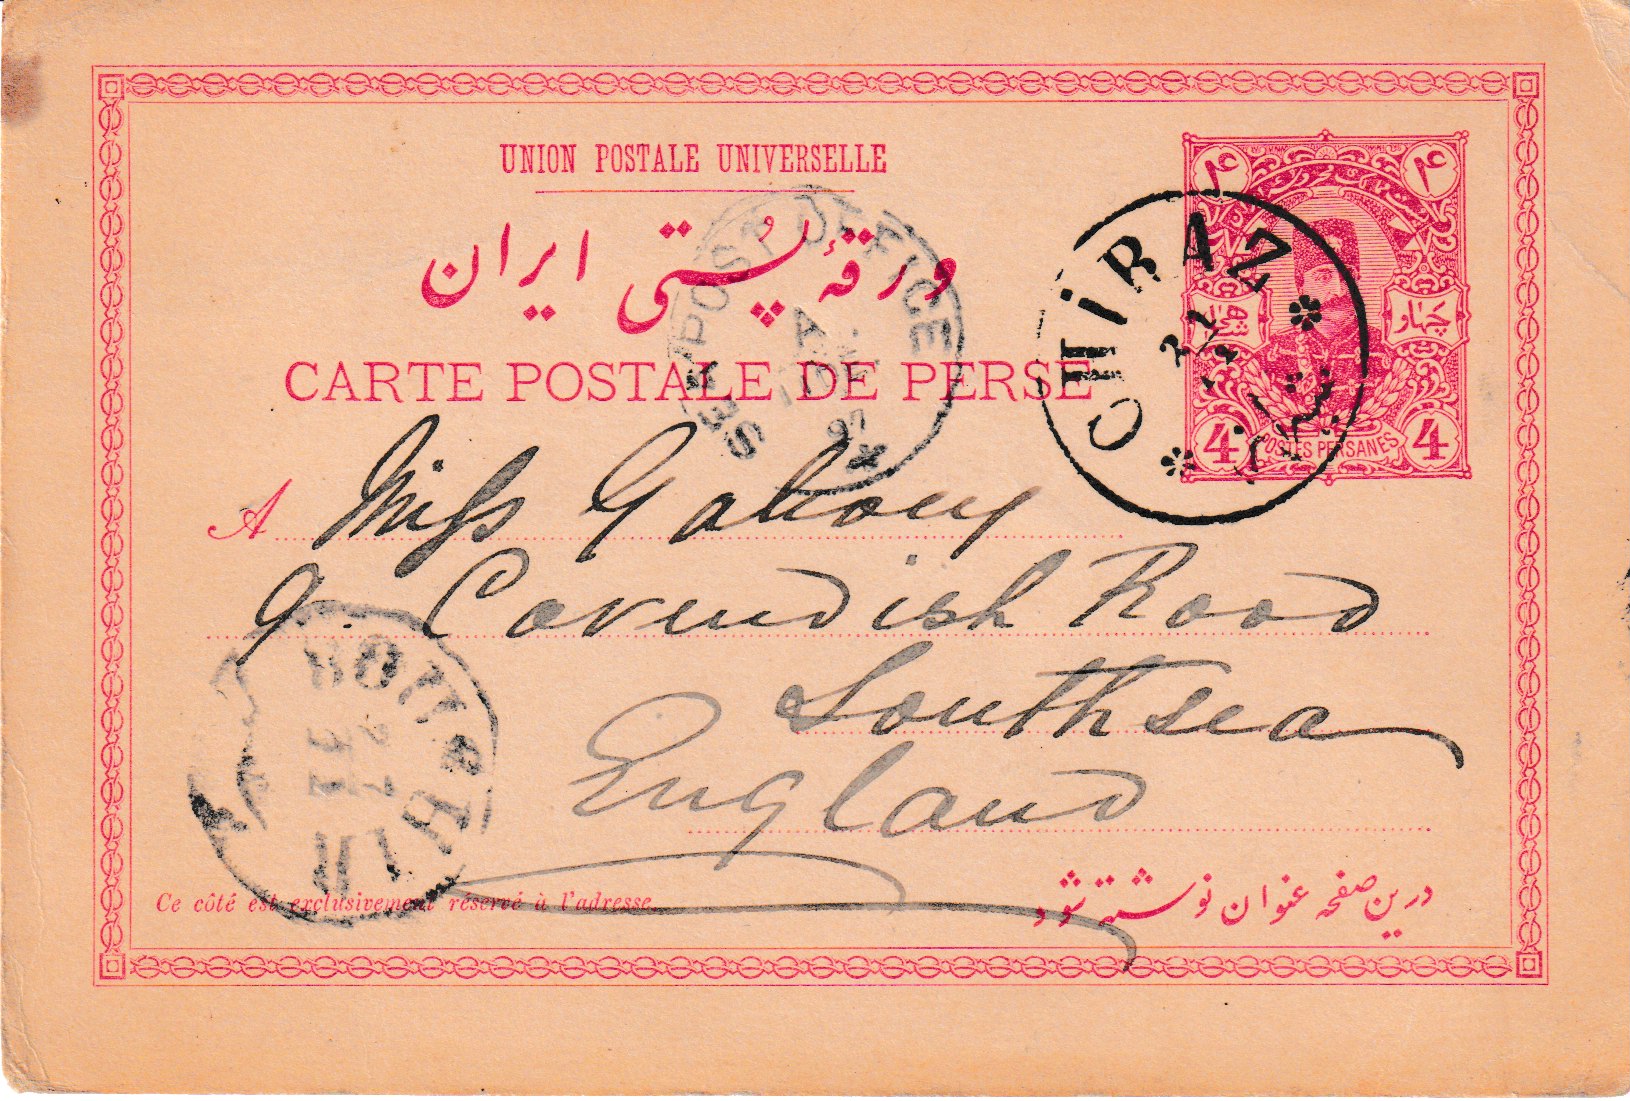 UNION POSTALE UNIVERSELLE
ورقهٔ پستی ایران
CARTE POSTALE DE PERSE
۴ ۴
چهار
4 POSTES PERSANES 4
CHIRAZ
POST OFFICE
A
97
A Miss Galloway
9. Cavendish Road
Southsea
England
Ce côté est exclusivement réservé à l'adresse.
درین صفحه عنوان نوشته شود